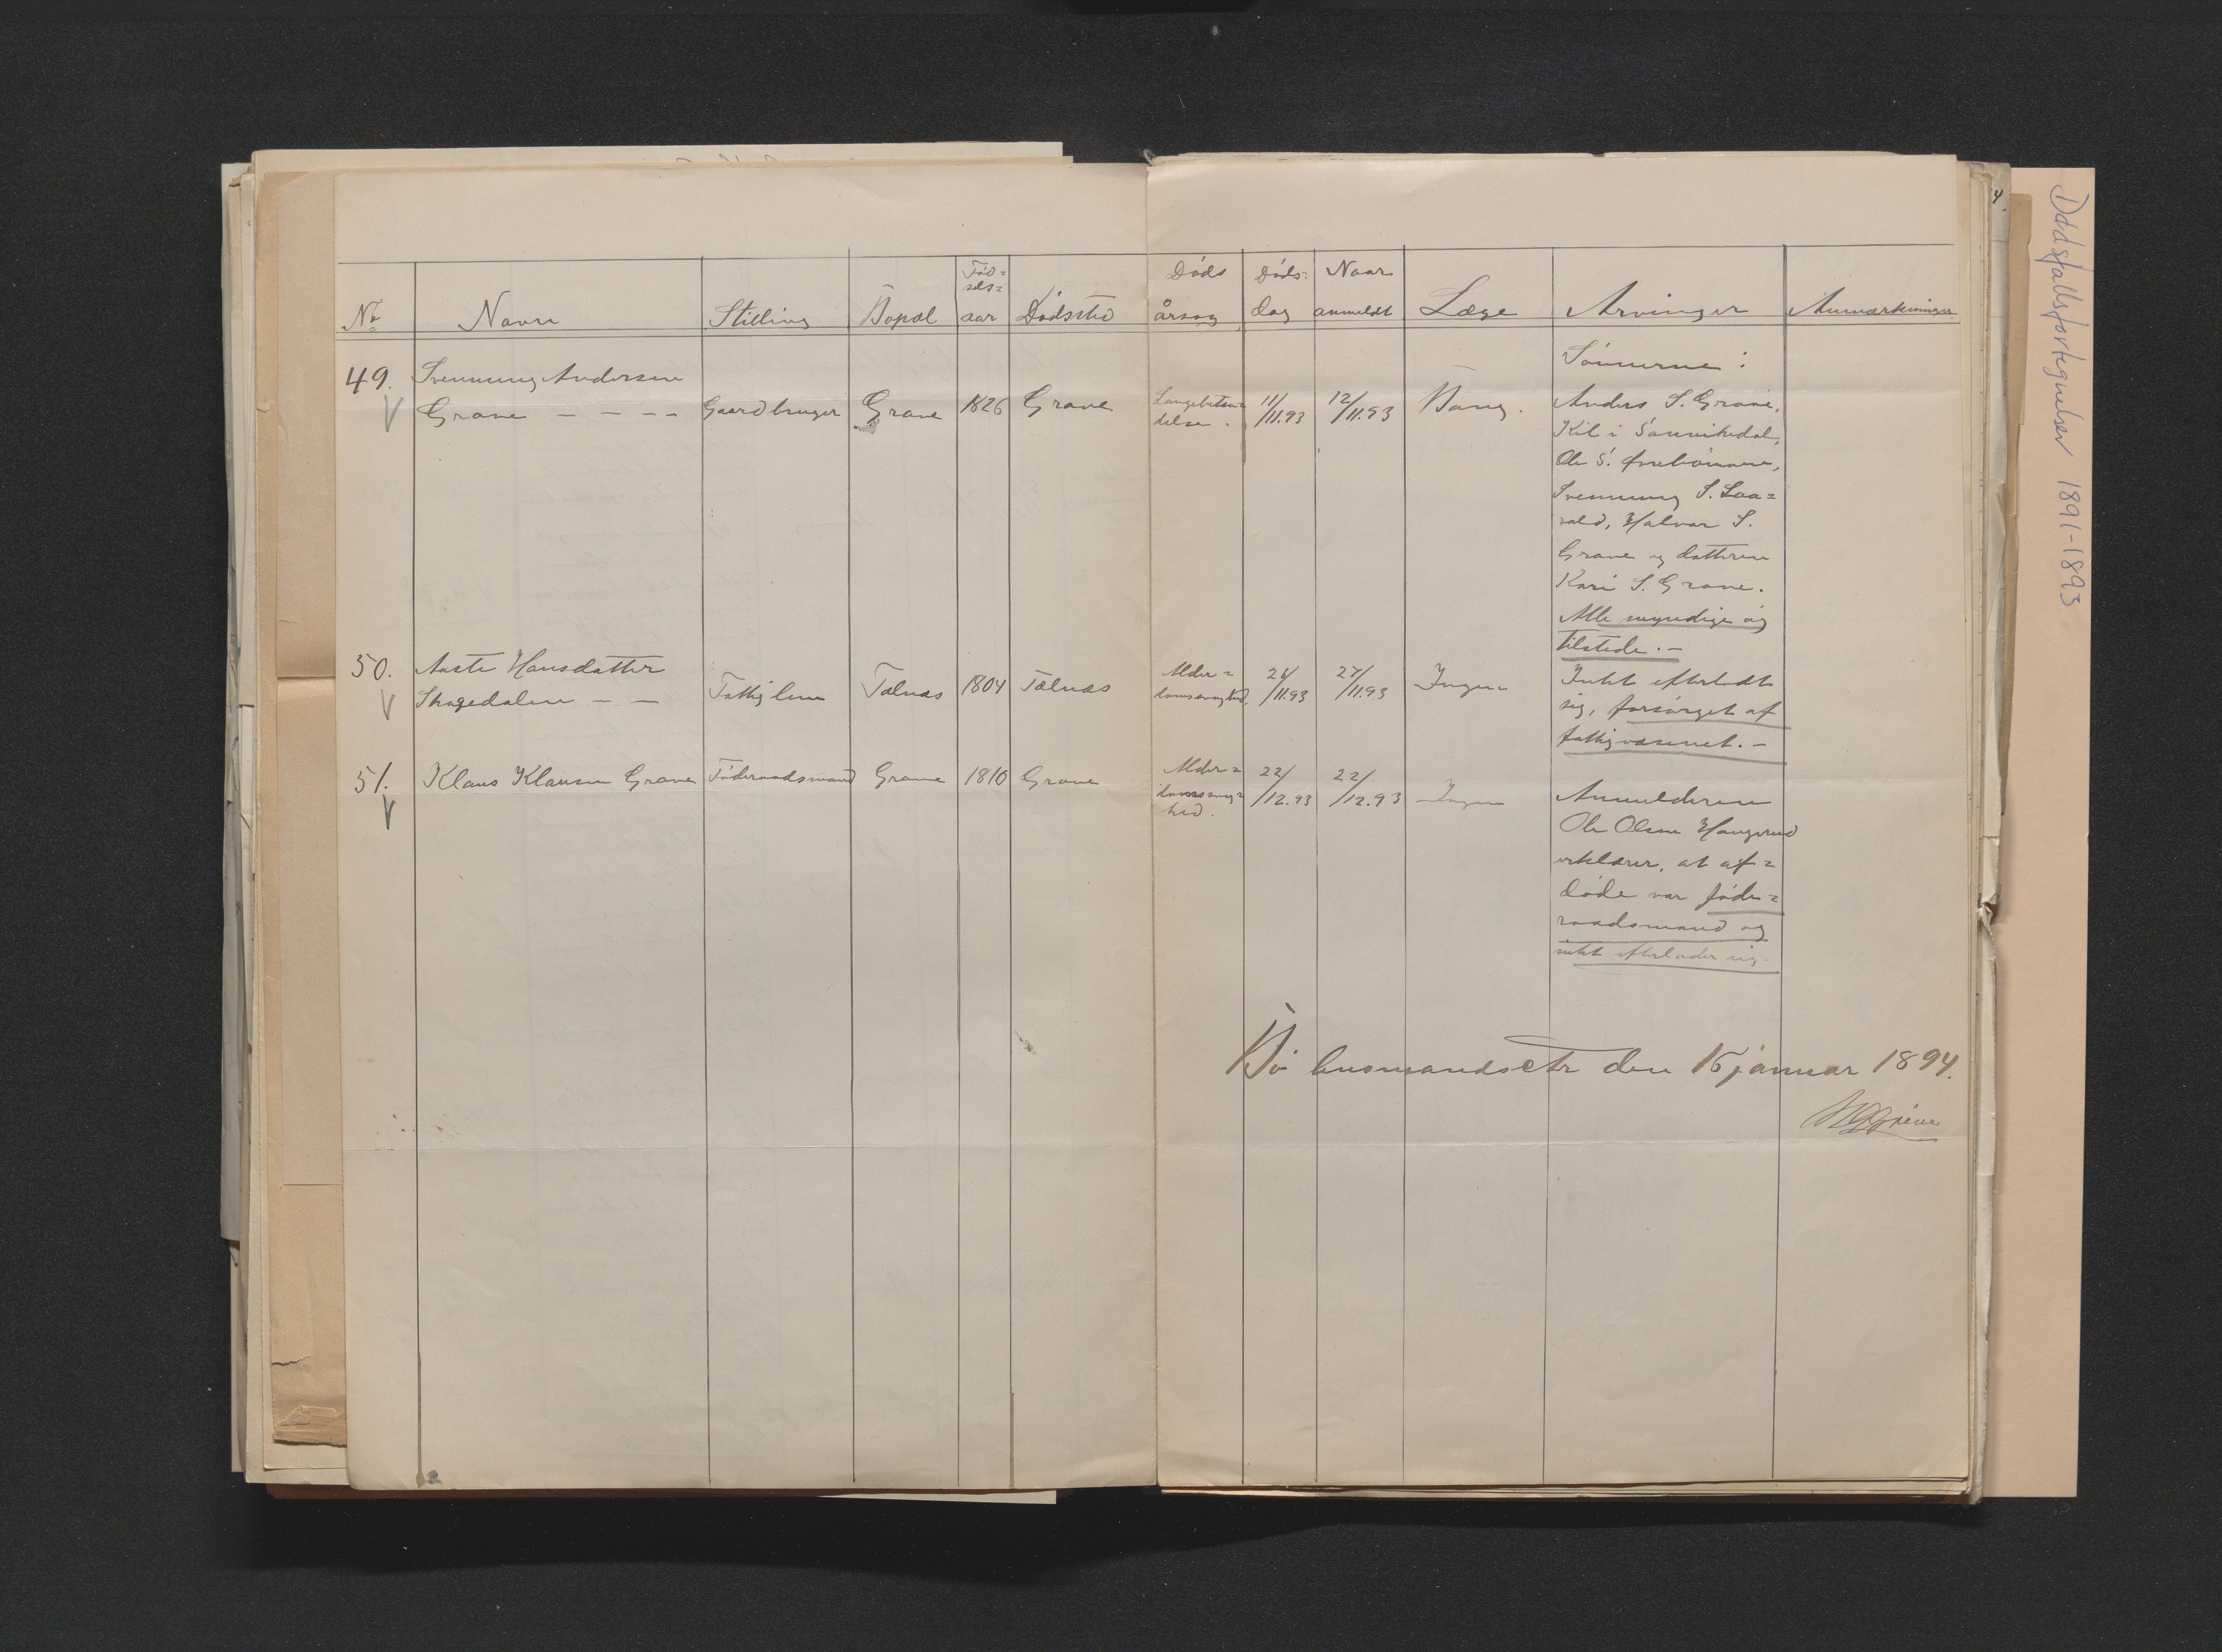 Dødsfallsfortegnelser 1891-1893
4.
Nr. Navn Stilling Bopæl Fød=sels=aar Dødssted Døds årsag Døds=dag Naar anmeldt Læge Arvinger Anmærkninger.
49. Svennung Andersen
Grave – – – – Gaardbruger Grave 1826 Grave Lungebeten=
delse. 11/11.93 12/11.93 Bang.
Sønnerne:
Anders S. Grave,
Kil i Sannikedal,
Ole S.
Svennung S. Laa=
vald, Halvor S.
Grave og datteren
Kari S. Grave.
Alle myndige og
tilstede. –
50. Aaste Hansdatter
Skogedalen – – Fattiglem Tælnæs 1804 Tælnæs Alder=
domssvaghed. 26/11.93 27/11.93 Ingen
Intet efterladt
sig, forsørget af
fattigvæsenet. –
51. Klaus Klausen Grave Føderaadsmand Grave 1810 Grave Alder=
domssvag=
hed. 22/12.93 22/12.93 Ingen
Anmelderen
Ole Olsen Haugerud
erklærer, at af=
døde var føde=
raadsmand og
intet efterlader sig.
Bø lensmandsetr den 15 januar 1894.